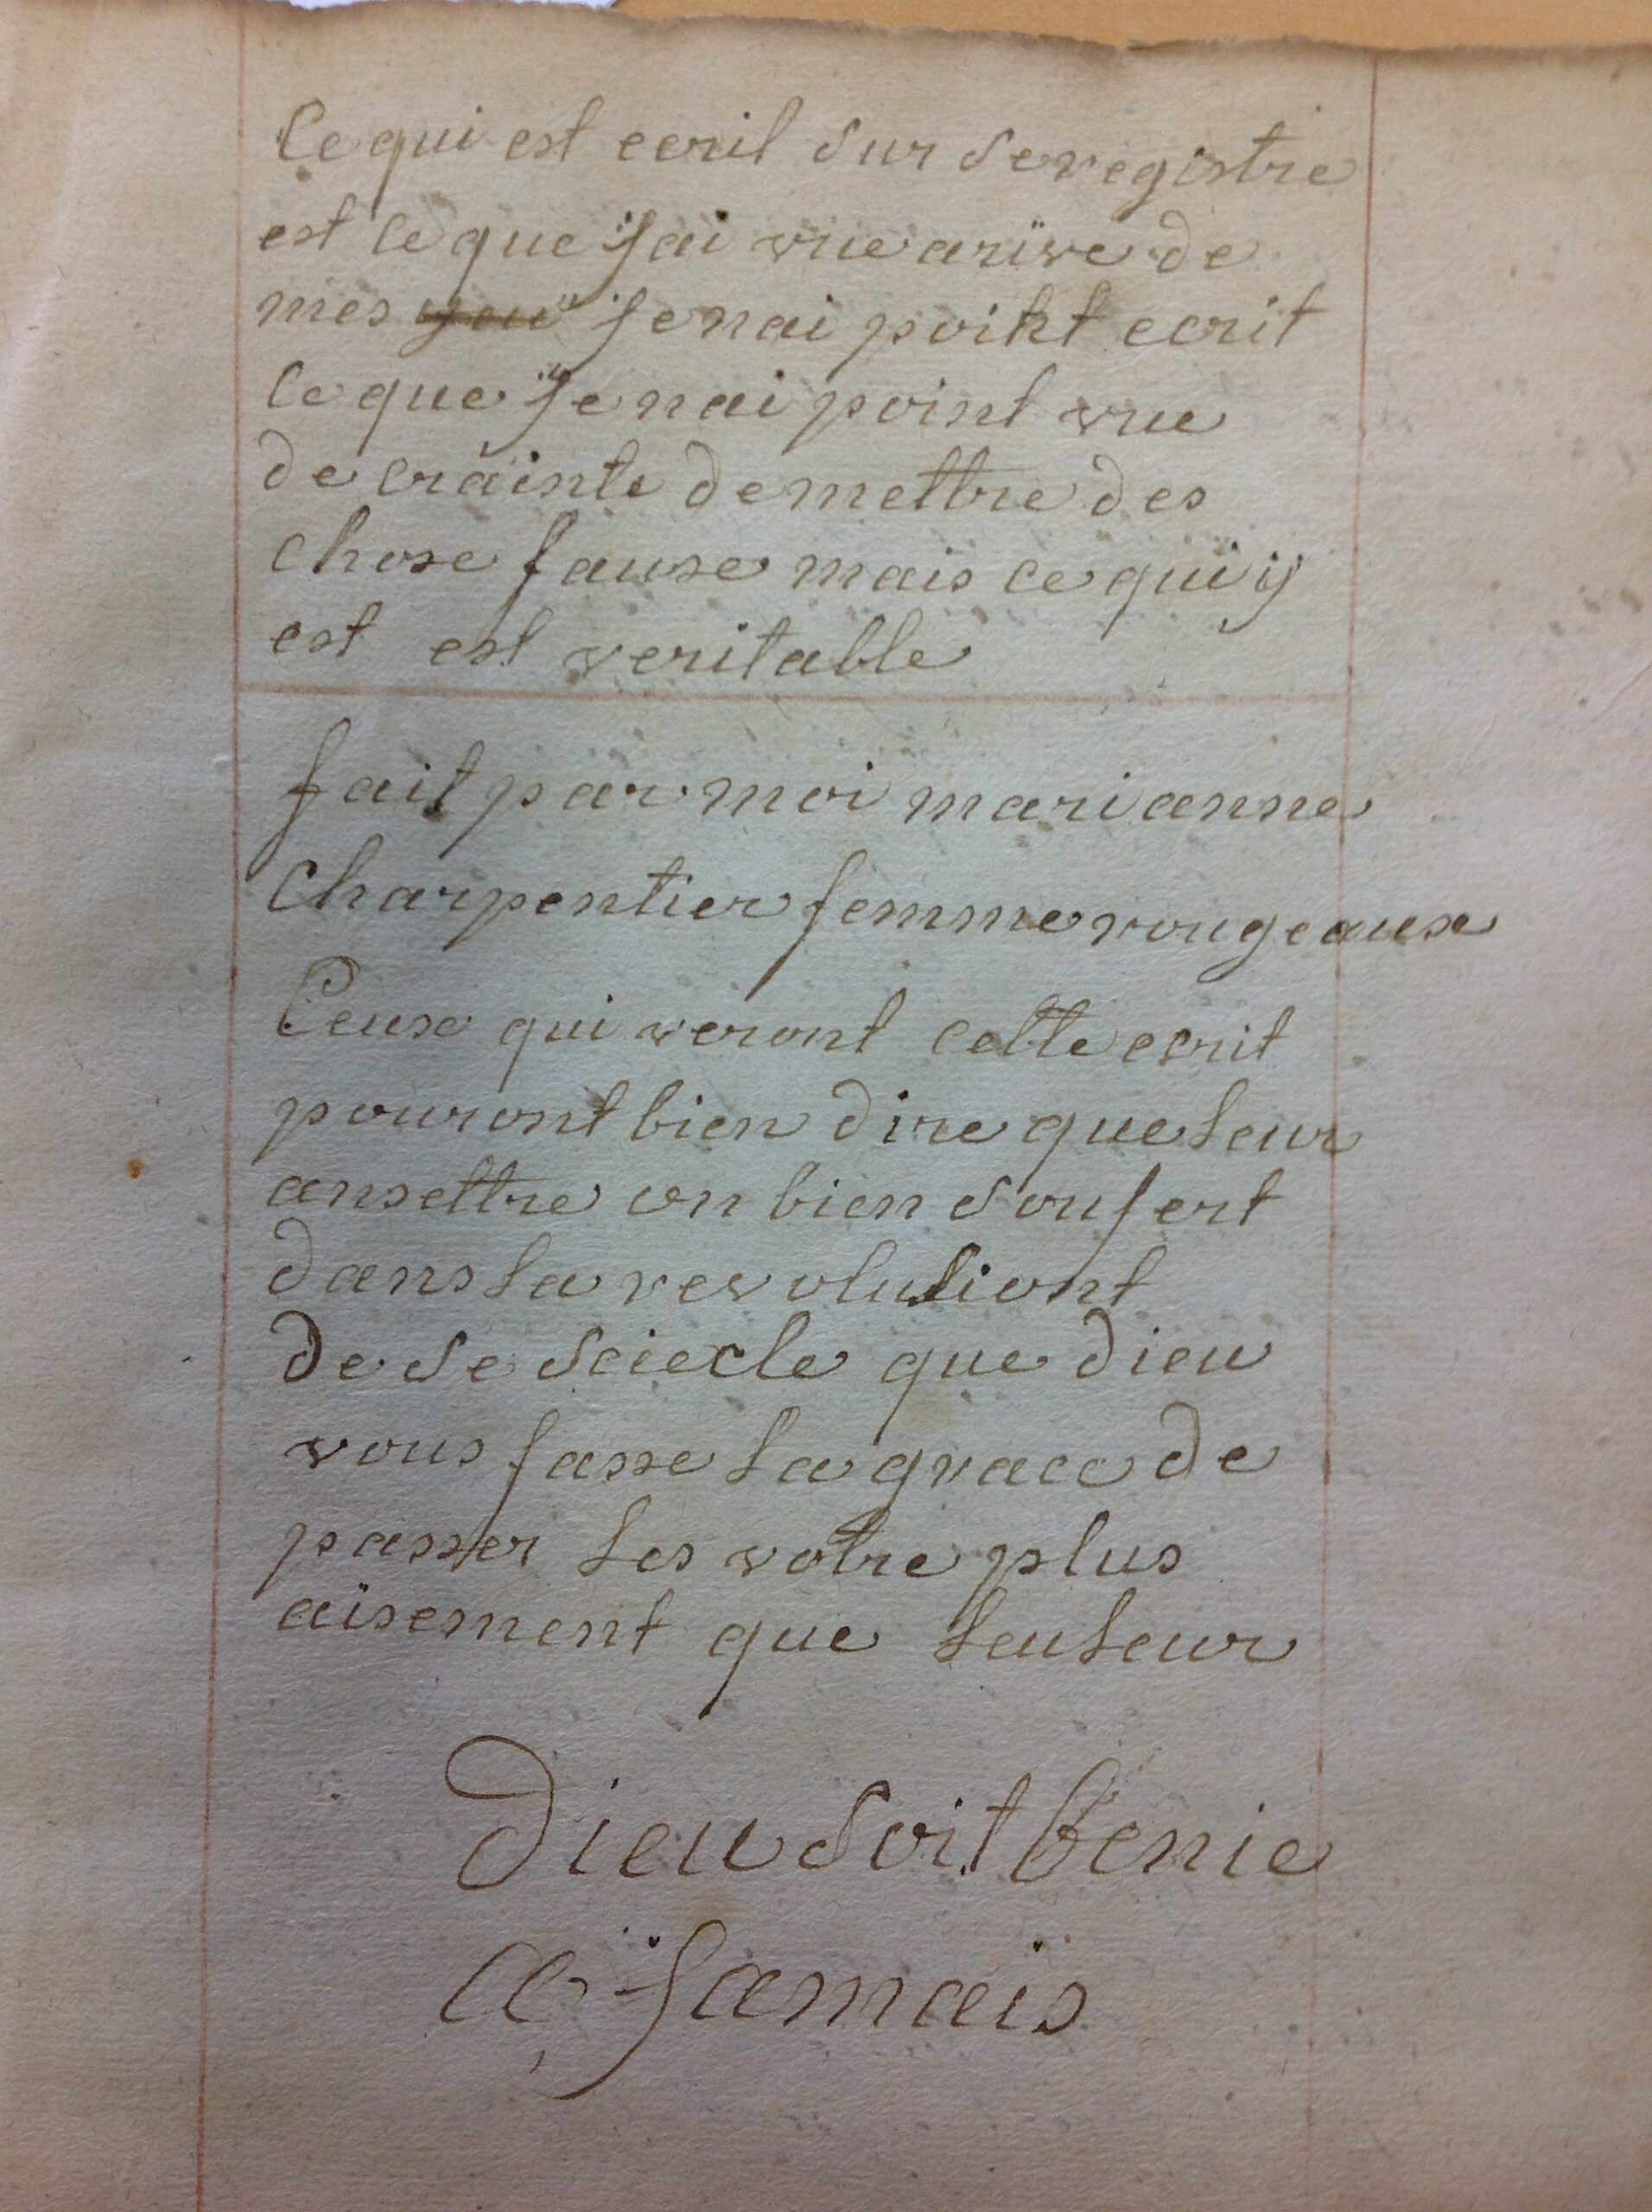 Ce qui est ecrit sur se registre
est ce que jai vue arive de
mes yeu je nai point ecrit
ce que je nai point vue
de crainte de mettre des
chose fause mais ce qui y
est est veritable
fait par moi marianne
charpentier femme rougeaux
Ceux qui veront cette ecrit
pouront bien dire que leur
ansettre on bien soufert
dans la revolutiont
de se sciecle que dieu
vous fasse la grace de
passer les votre plus
aisement que leuleur
Dieu soit benie
a jamais